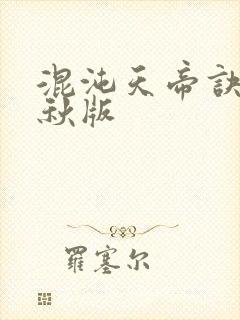 混沌天帝诀
秋版
羅塞尔